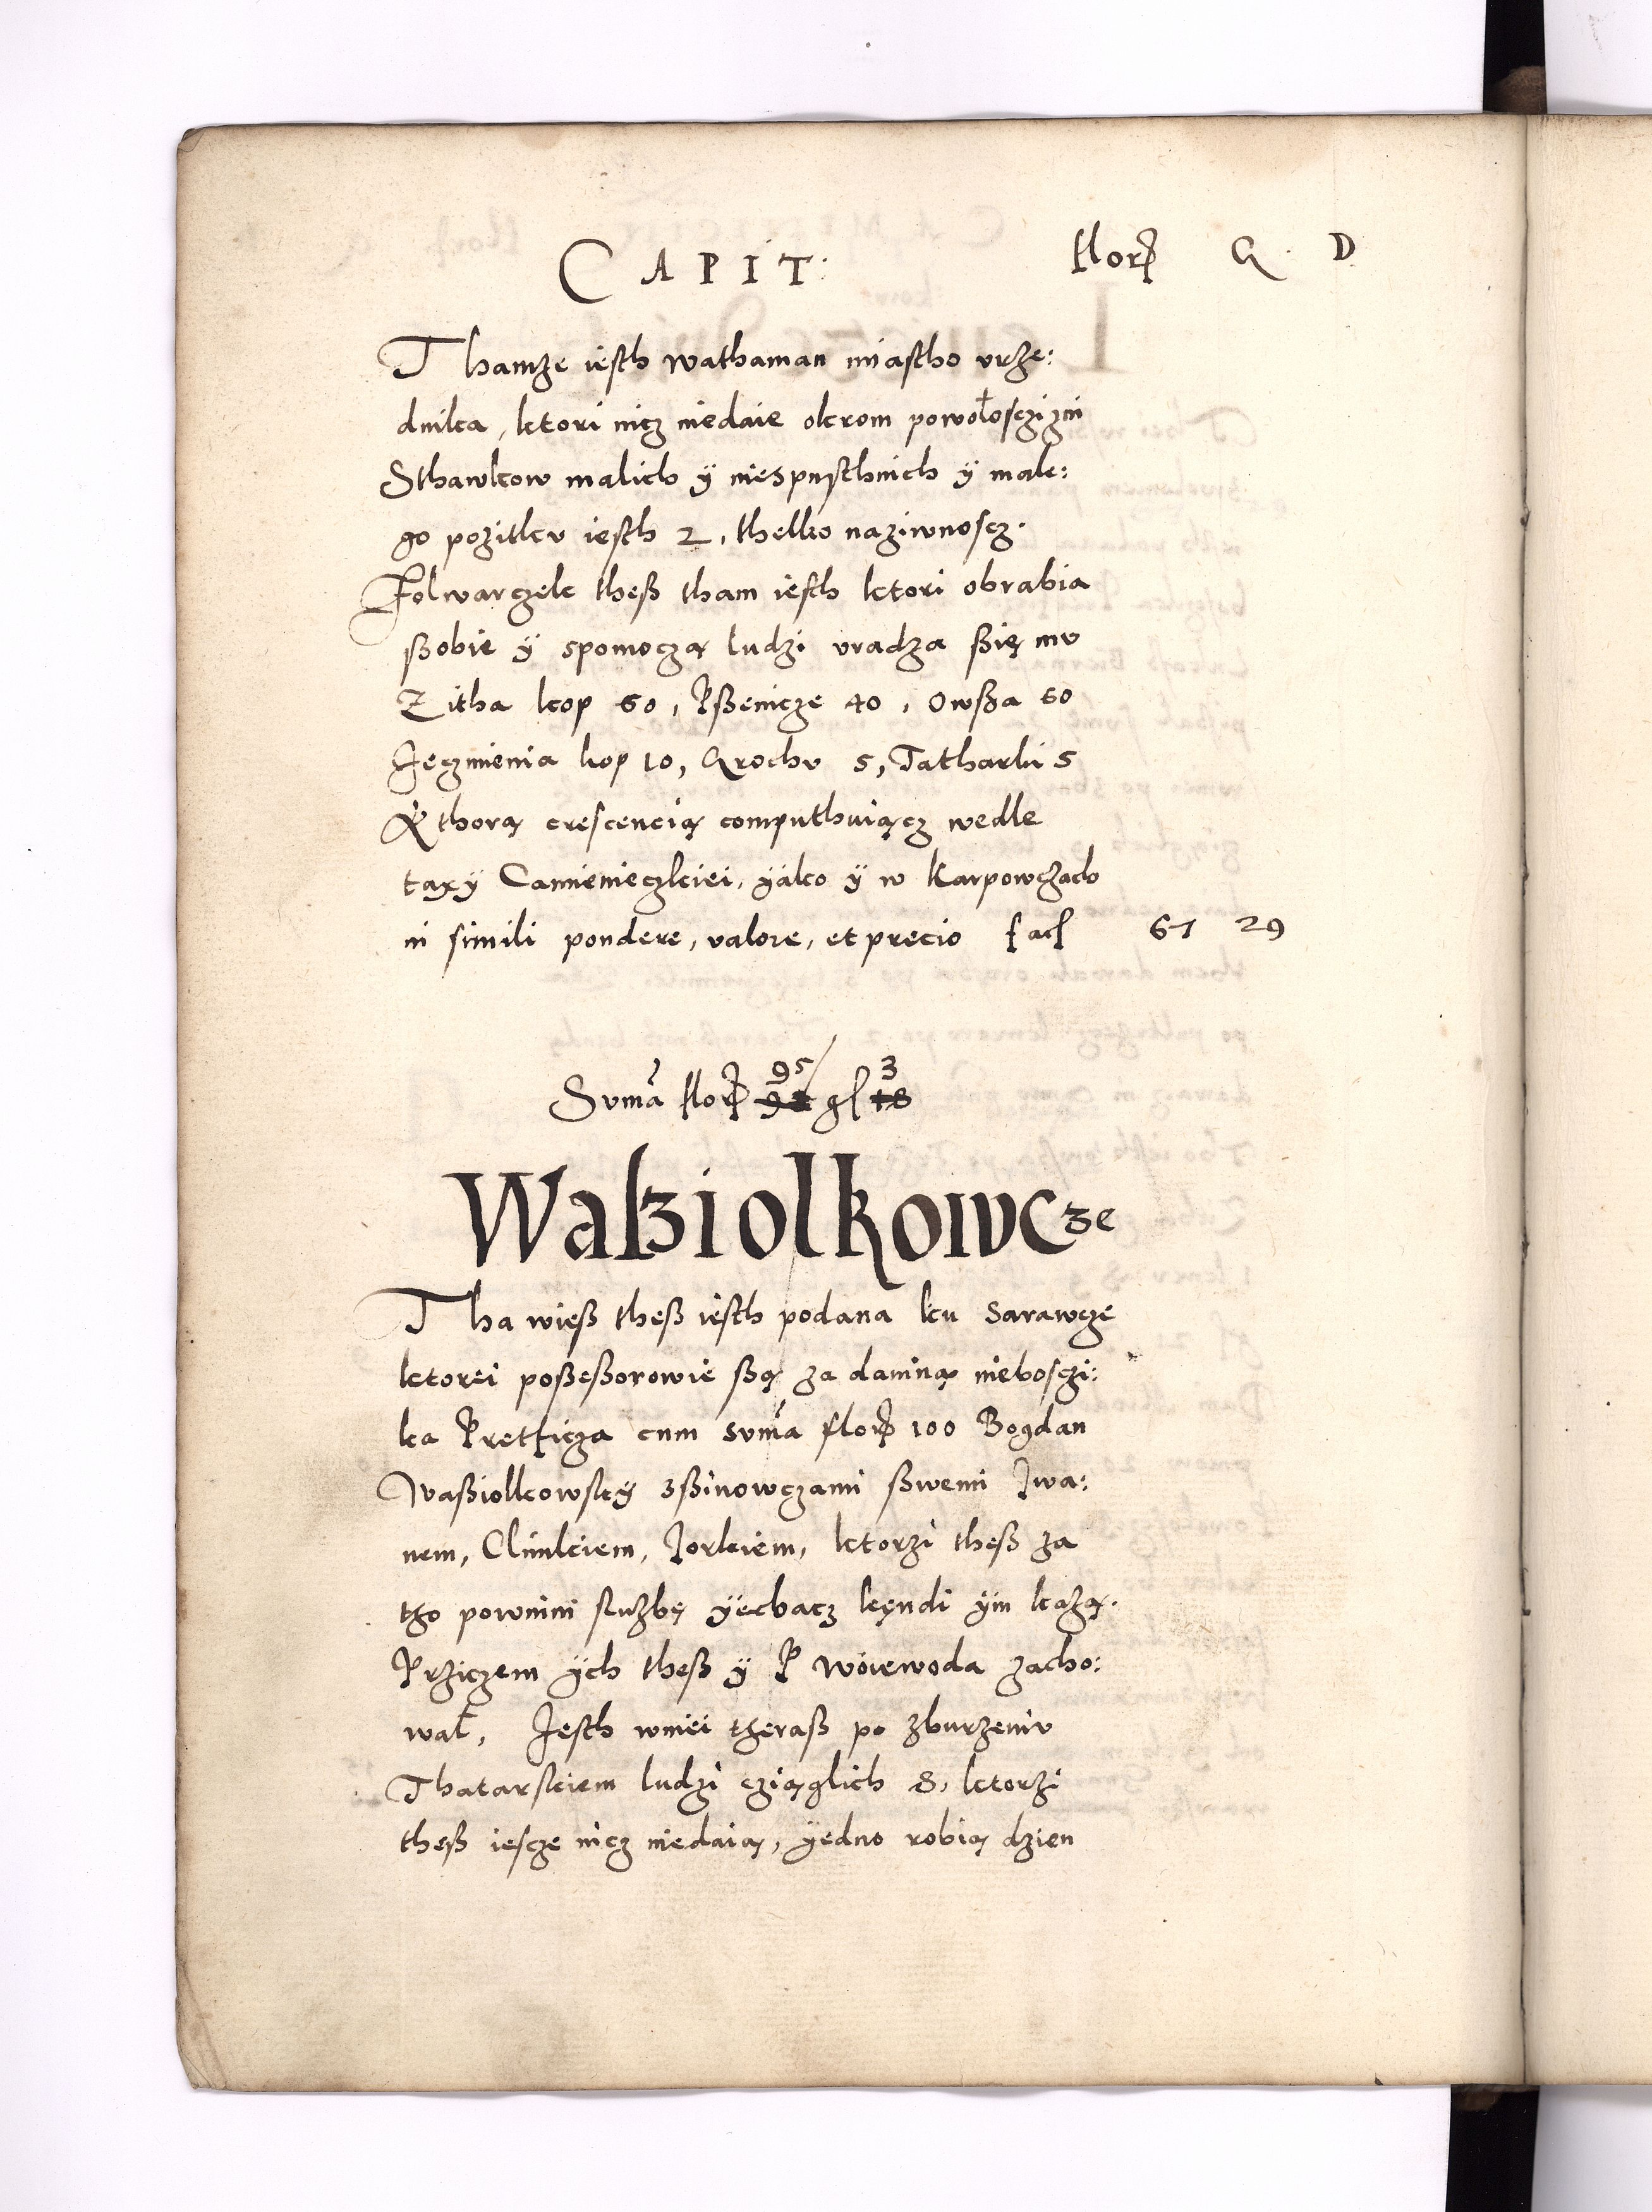 CAPIT: flor G. D.
Thamże iesth wathaman miastho vrże:
dnika, ktori nicz niedaie okrom powołosczizni
Sthawkow malich ÿ niespusthnich ÿ małe:
go pozitku iesth 2, thelko naziwnoscz.
Folwarczek theß tham iesth ktori obrabia
ßobie ÿ spomoczą ludzi vradza ßię mv
Zitha kop 60, Pßenicze 40, Owßa 60
Jeczmienia kop 10, Grochv 5, Tatharki 5
Kthorą crescencią computhuiącz wedle
taxÿ Camienieczkiei, ÿako ÿ w Karpowczach
in simili pondere, valore, et precio fac 61 29
95 3
Suma flor gr 18
Waßiolkowcze
Tha wieß theß iesth podana ku Sarawcze
ktorei poßeßorowie ßą za daniną niebosczi:
ka Pretficza cum suma flor 100 Bogdan
Waßiolkowskÿ zßinowczami ßwemi Iwa:
nem, Climkiem, Jorkiem, ktorzi theß za
tho powinni służbę ÿechacz kęndi ÿm każą.
Prziczem ÿch theß ÿ P woiewoda zacho:
wał, Jesth wniei theraß po zburzeniv
Thatarskiem ludzi cziąglich 8, ktorzi
theß iescze nicz niedaią, ÿedno robią dzien